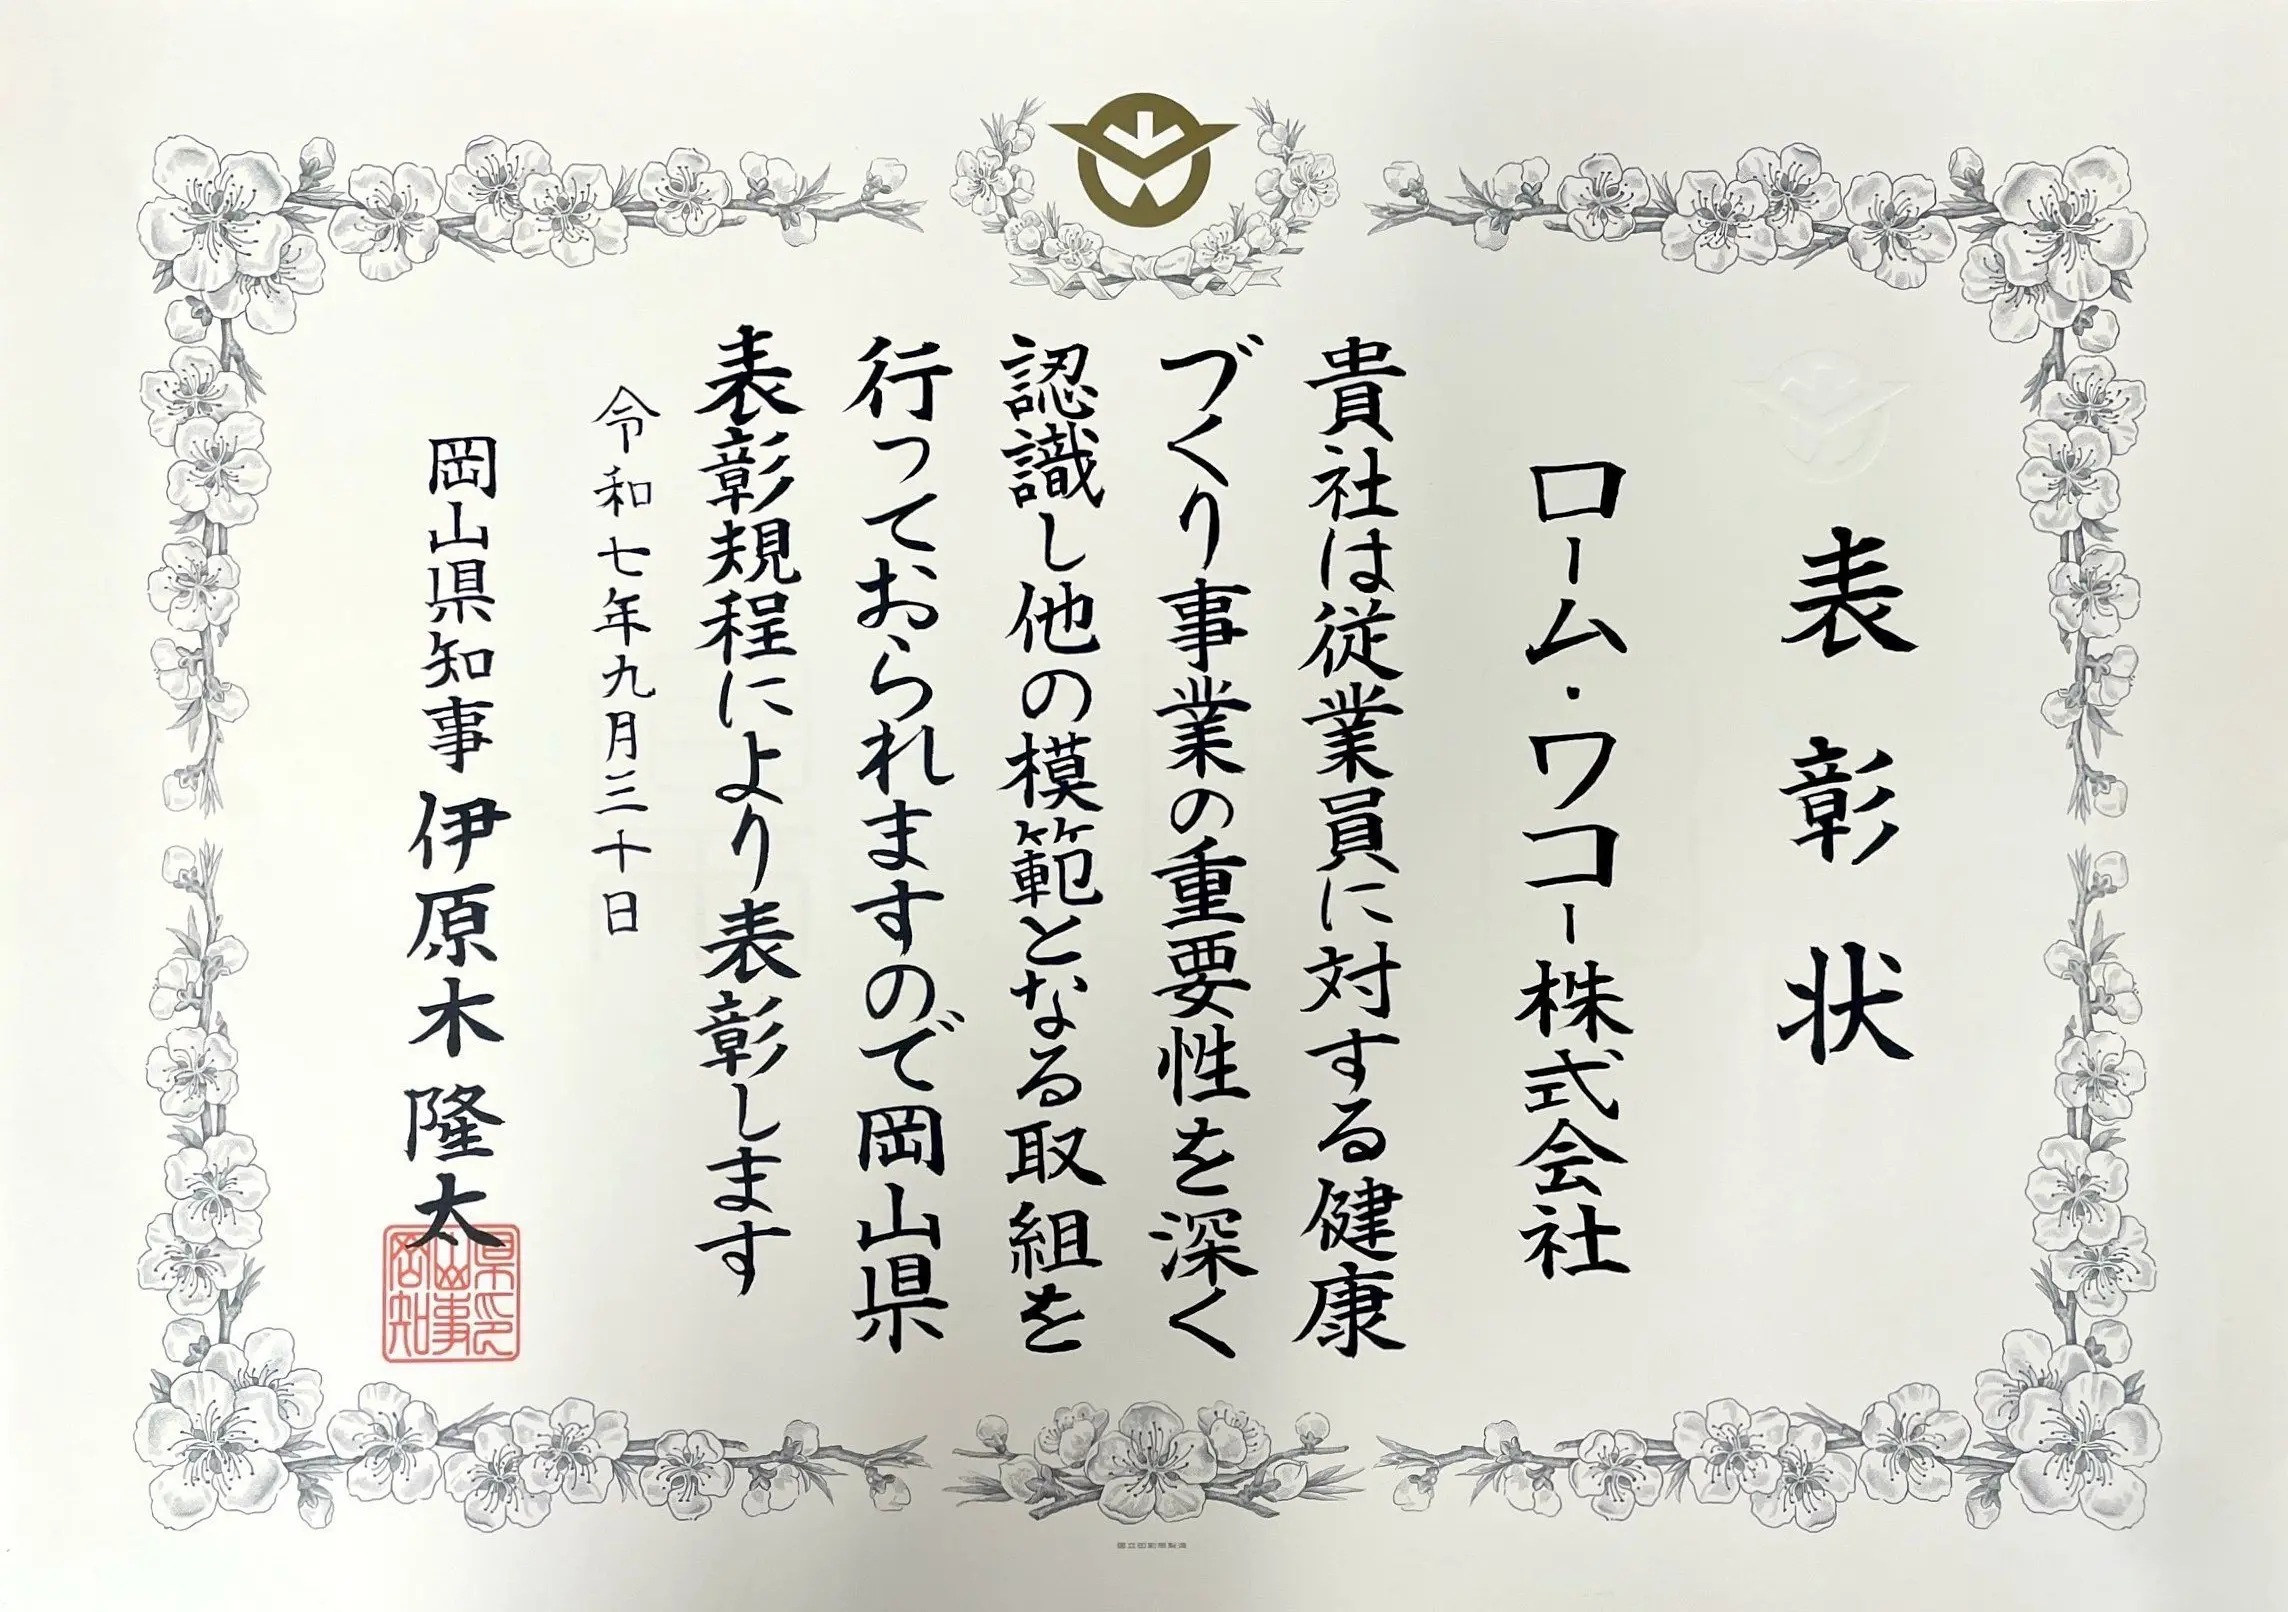 表彰状
ローム・ワコー株式会社
貴社は従業員に対する健康
づくり事業の重要性を深く
認識し他の模範となる取組を
行っておられますので岡山県
表彰規程により表彰します
令和七年九月三十日
岡山県知事 伊原木隆太
岡山県知事印